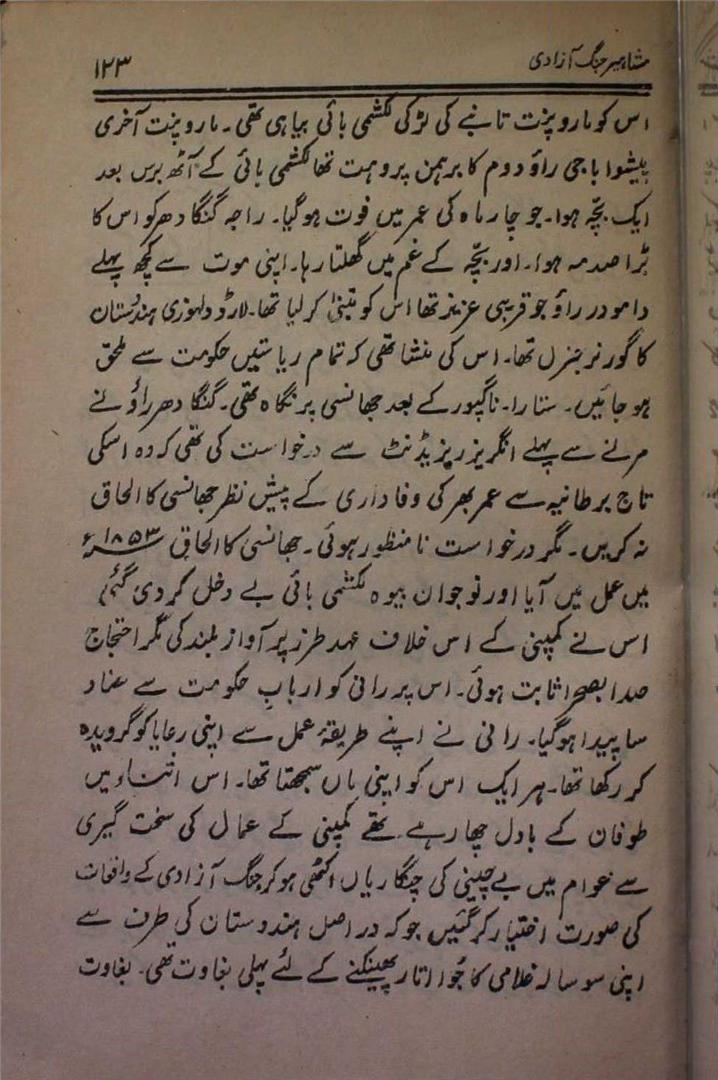 مشاہیر جنگ آزادی
۱۲۳
اس کو مارو پنت تانبے کی لڑکی لکشمی بائی بیاہی تھی۔ مارو پنت آخری
پیشوا باجی راؤ دوم کا برہمن پروہت تھا لکشمی بائی کے آٹھ برس بعد
ایک بچّہ ہوا۔ جو چار ماہ کی عمر میں فوت ہو گیا۔ راجہ گنگا دھر کو اس کا
بڑا صدمہ ہوا۔ اور بچّہ کے غم میں گھلتا رہا۔ اپنی موت سے کچھ پہلے
دامودر راؤ جو قریبی عزیز تھا اس کو متبنیٰ کر لیا تھا۔ لارڈ ڈلہوزی ہندستان
کا گورنر جنرل تھا۔ اس کی منشا تھی کہ تمام ریاستیں حکومت سے ملحق
ہو جائیں۔ ستارا۔ ناگپور کے بعد جھانسی پر نگاہ تھی۔ گنگا دھر راؤ نے
مرنے سے پہلے انگریز ریزیڈنٹ سے درخواست کی تھی کہ وہ اسکی
تاج برطانیہ سے عمر بھر کی وفاداری کے پیش نظر جھانسی کا الحاق
نہ کریں۔ مگر درخواست نامنظور ہوئی۔ جھانسی کا الحاق ۱۸۵۳ء
میں عمل میں آیا اور نوجوان بیوہ لکشمی بائی بے دخل کر دی گئی
اس نے کمپنی کے اس خلاف عہد طرز پر آواز بلند کی مگر احتجاج
صدا بصحرا ثابت ہوئی۔ اس پر رانی کو اربابِ حکومت سے عناد
سا پیدا ہو گیا۔ رانی نے اپنے طریقۂ عمل سے اپنی رعایا کو گرویدہ
کر رکھا تھا۔ ہر ایک اس کو اپنی ماں سمجھتا تھا۔ اس اثناء میں
طوفان کے بادل چھا رہے تھے کمپنی کے عمال کی سخت گیری
سے عوام میں بے چینی کی چنگاریاں اکٹھی ہو کر جنگ آزادی کے واقعات
کی صورت اختیار کر گئیں جو کہ دراصل ہندوستان کی طرف سے
اپنی سو سالہ غلامی کا جُوا اتار پھینکنے کے لئے پہلی بغاوت تھی۔ بغاوت